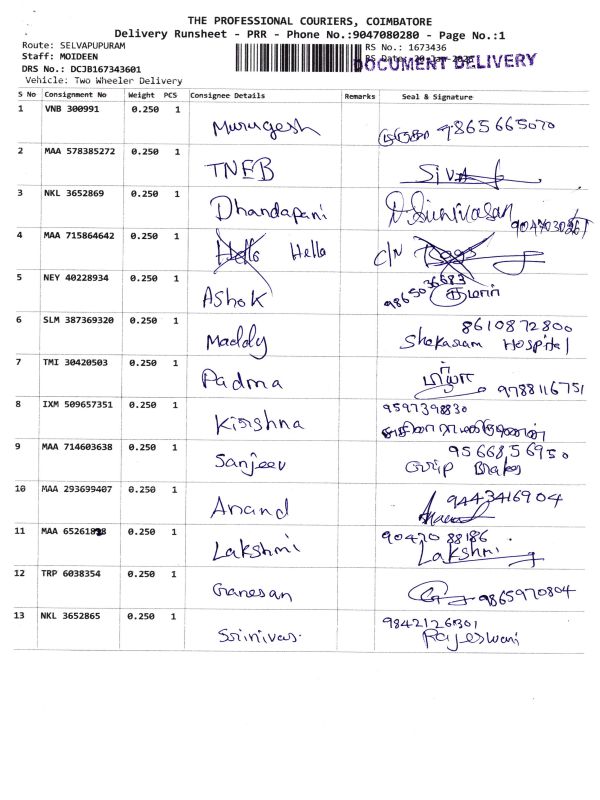 THE PROFESSIONAL COURIERS, COIMBATORE
Delivery Runsheet - PRR - Phone No.:9047080280 - Page No.:1
Route: SELVAPUPURAM
RS No.: 1673436
Staff: MOIDEEN
DOCUMENT DELIVERY
DRS No.: DCJB167343601
Vehicle: Two Wheeler Delivery
S No Consignment No Weight PCS Consignee Details Remarks Seal & Signature
1 VNB 300991 0.250 1
Murugesh 9865665070
2 MAA 578385272 0.250 1
TNEB SIVA
3 NKL 3652869 0.250 1
Dhandapani D. Srinivasan
4 MAA 715864642 0.250 1
Hello Hello C/N
5 NEY 40228934 0.250 1
Ashok 9865036683
குமார்
6 SLM 387369320 0.250 1
8610872800
Maddy Hospital
7 TMI 30420503 0.250 1
Padma பிரியா 9788116751
8 IXM 509657351 0.250 1
9597398830
Krishna
9 MAA 714603638 0.250 1
9566856950
Sanjeev Grip Brakes
10 MAA 293699407 0.250 1
Anand 9443416904
11 MAA 0.250 1
9047088186
Lakshmi Lakshmi
12 TRP 6038354 0.250 1
Ganesan 9865970804
13 NKL 3652865 0.250 1
9842126301
Srinivas Rajeswani